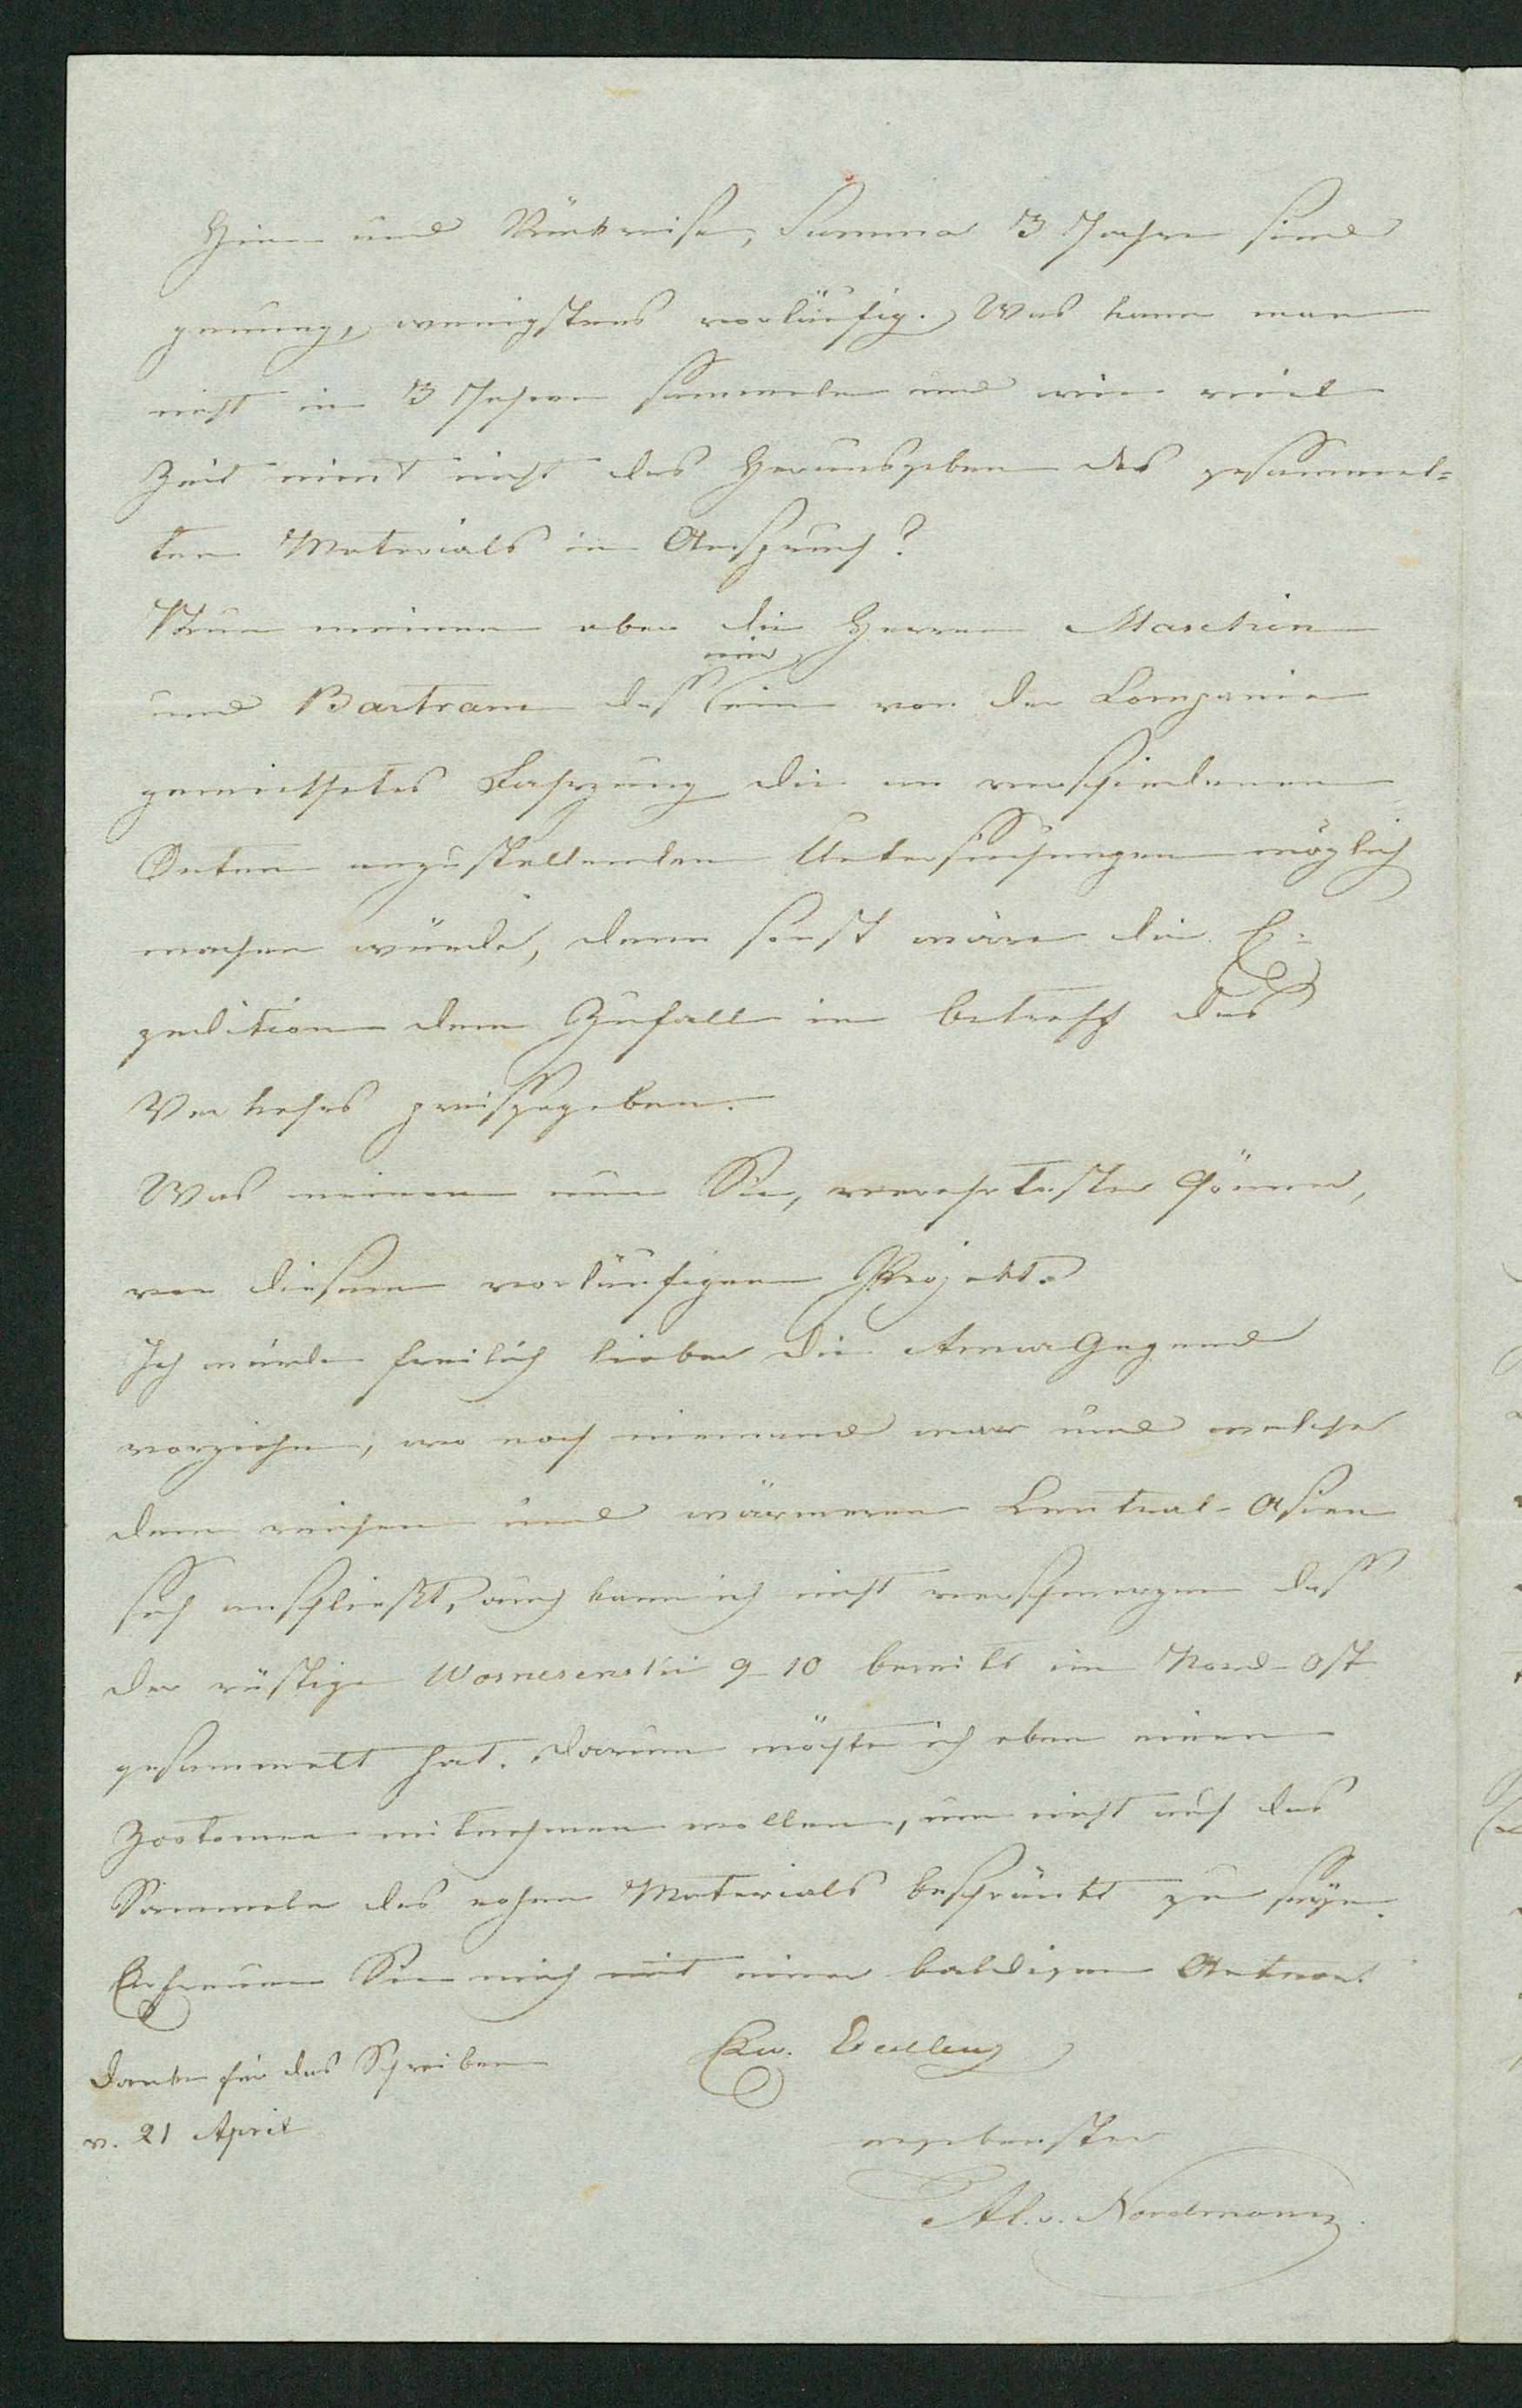 Hin- und Rückreise, Summa 3 Jahre sind
genung, wenigstens vorläufig. Was kann man
nicht in 3 Jahren sammeln und wie viel
Zeit nimt nicht das Herausgeben des gesammel-
ten Materials in Anspruch?
Nun meinen aber die Herren Maschin
nur
und Bartram daß ein von der Compagnie
gemiethetes Fahrzeug die an verschiedenen
Orten anzustellenden Untersuchungen möglich
machen würde, denn sonst wäre die Ex-
pedition dem Zufall in betreff des
Verkehrs preisgegeben.
Was meinen nun Sie, verehrtester Gönner,
von diesem vorläufigen Projekt?
Ich würde freilich lieber die Amur Gegend
vorziehen, wo noch niemand war und welche
dem reichen und wärmeren Central-Asien
sich anschließt, auch kann ich nicht verschmerzen daß
der rüstige Wosnesenski 9-10 bereits im Nord-Ost
gesammelt hat. Darum möchte ich eben einen
Zootomen mitnehmen wollen, um nicht auf das
Sammeln des rohen Materials beschränkt zu seyn.
Erfreuen Sie mich mit einer baldigen Antwort
Danke für das Schreiben
v. 21 April
Ew. Excellenz
ergebenster
Al. v. Nordmann.